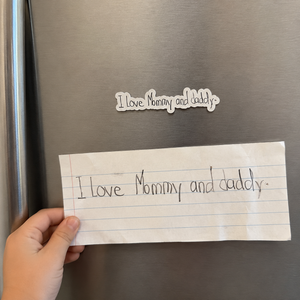 I love Mommy and daddy.
I love Mommy and daddy.